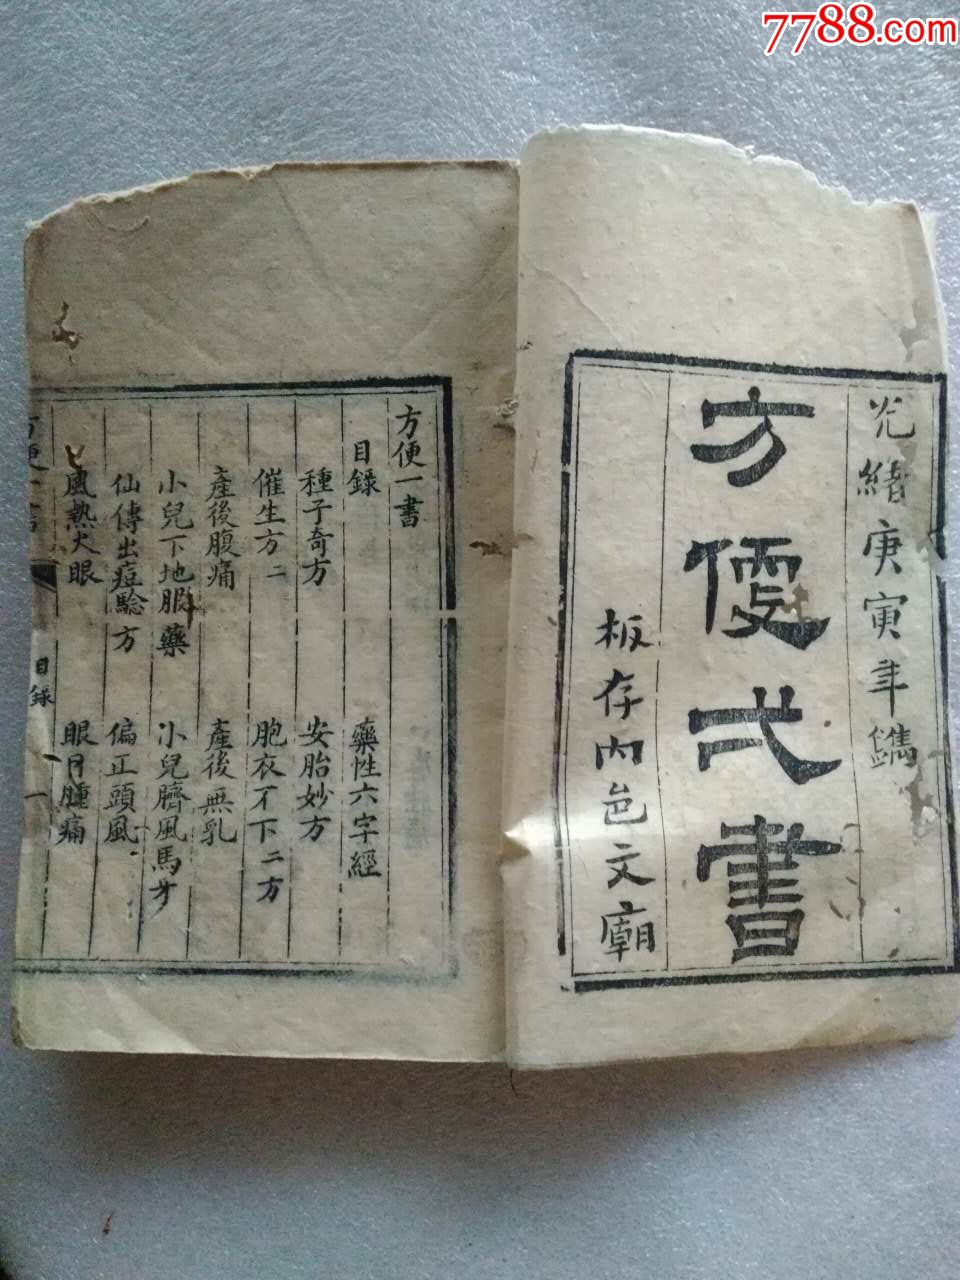 7788.com
光緒庚寅年鐫
方便弌書
板存內邑文廟
方便一書
目錄
藥性六字經
種子奇方
安胎妙方
催生方二
胞衣不下二方
產後腹痛
產後無乳
小兒下地服藥
小兒臍風馬牙
仙傳出痘驗方
偏正頭風
風熱火眼
眼目腫痛
方便一書
目錄
一